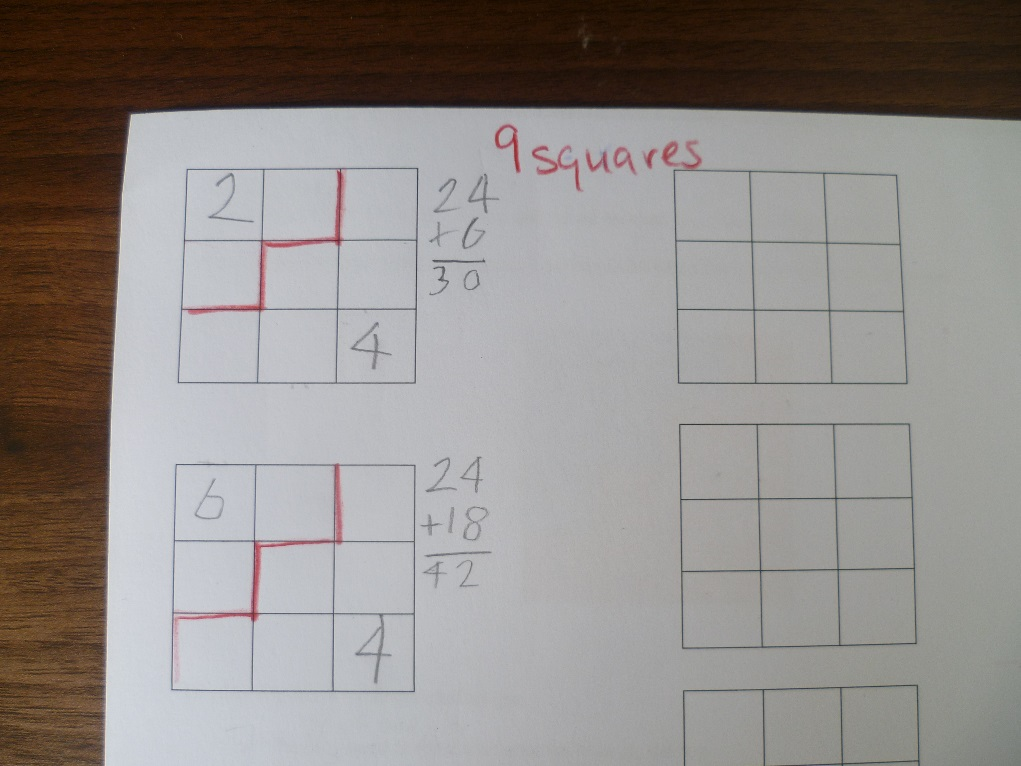 9 squares
2
4
24
+6
30
6
4
24
+18
42